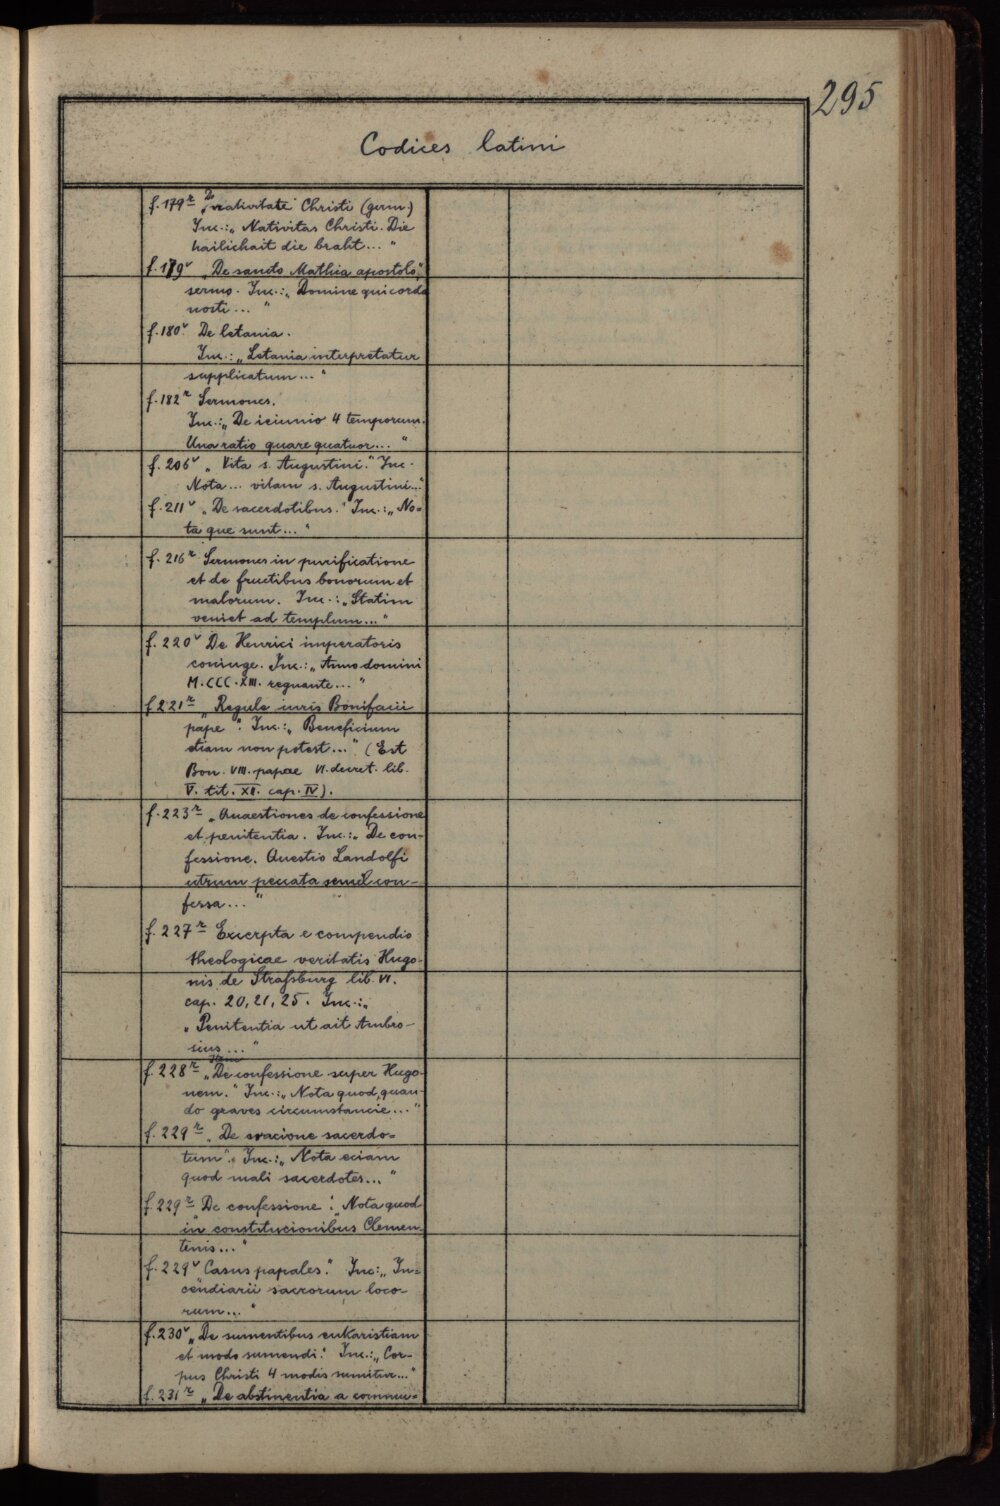 295
Codices latini
f. 179r "De nativitate Christi (germ.)
Inc.: „Nativitas Christi. Die
hailichait die braht..."
f. 179v „De sancto Mathia apostolo",
sermo. Inc.: „Domine qui corda
nosti..."
f. 180v De letania.
Inc.: „Letania interpretatur
supplicatum..."
f. 182r Sermones.
Inc.: „De ieiunio 4 temporum.
Una ratio quare quatuor..."
f. 206v „Vita s. Augustini." Inc.
Nota... vitam s. Augustini..."
f. 211v „De sacerdotibus." Inc.: „No=
ta que sunt..."
f. 216r Sermones in purificatione
et de fructibus bonorum et
malorum. Inc.: „Statim
veniet ad templum..."
f. 220v De Henrici imperatoris
coniuge. Inc.: „Anno domini
M.CCC.XIII. regnante..."
f. 221r „Regule iuris Bonifacii
pape". Inc.: „Beneficium
etiam non potest..." (Est
Bon. VIII. papae VI. decret. lib.
V. tit. XII. cap. IV).
f. 223r „Quaestiones de confessione
et penitentia. Inc.: „De con-
fessione. Questio Landolfi
utrum peccata semel con-
fessa..."
f. 227r Excerpta e compendio
theologicae veritatis Hugo-
nis de Strassburg lib. VI.
cap. 20, 21, 25. Inc.: „
„Penitentia ut ait Ambro-
sius..."
f. 228r „Item De confessione super Hugo-
nem." Inc.: „Nota quod, quan-
do graves circumstancie..."
f. 229r „De oracione sacerdo=
tum". Inc.: „Nota eciam
quod mali sacerdotes..."
f. 229r De confessione: „Nota quod
in constitucionibus Clemen-
tenis..."
f. 229v Casus papales." Inc: „In=
cendiarii sacrorum loco-
rum..."
f. 230v „De sumentibus eukaristiam
et modo sumendi." Inc.: „Cor-
pus Christi 4 modis sumitur..."
f. 231r „De abstinentia a commu=